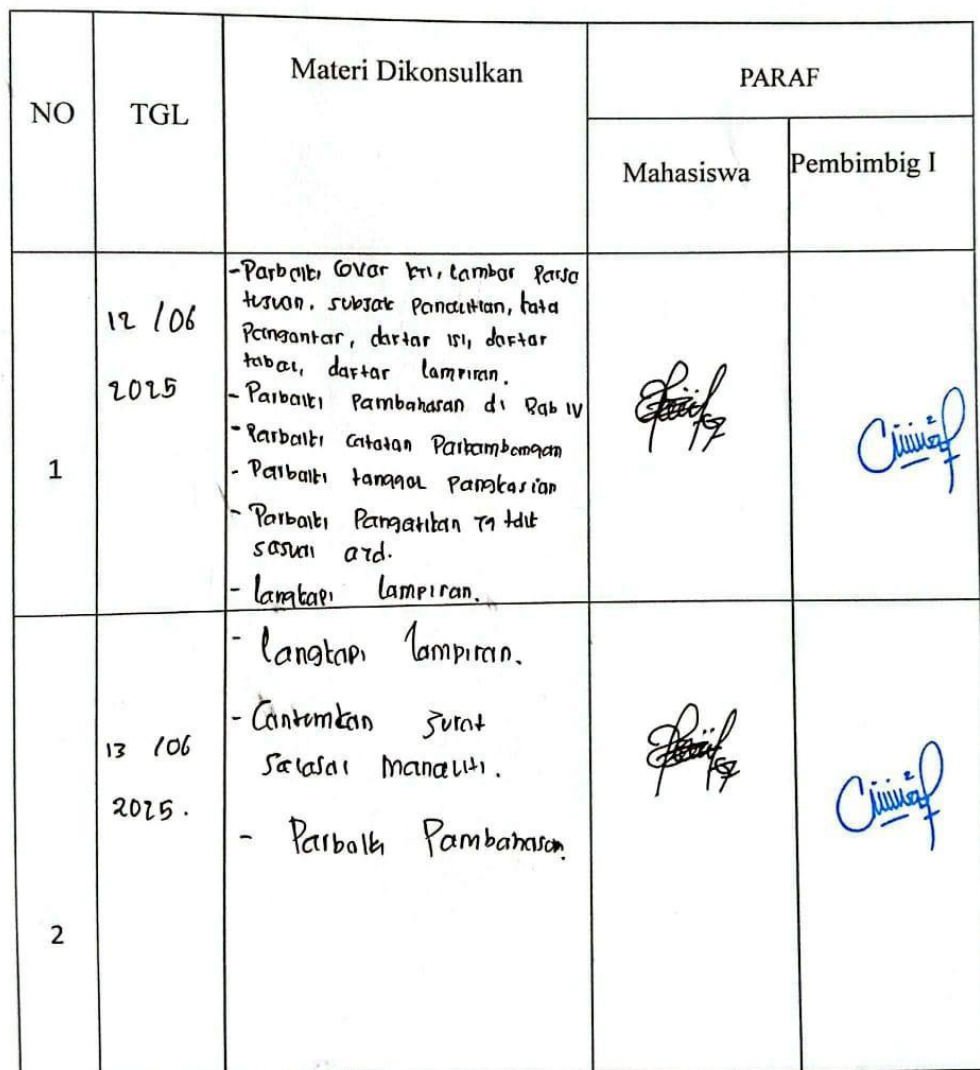 NO
TGL
Materi Dikonsulkan
PARAF
Mahasiswa
Pembimbig I
1
12 /06
2025
- Perbaiki Cover KTI, Lembar Perse
tujuan, subjek Penelitian, kata
Pengantar, daftar isi, daftar
tabel, daftar lampiran.
- Perbaiki Pembahasan di Bab IV
- Perbaiki catatan Perkembangan
- Perbaiki tanggal pengkajian
- Perbaiki Pengetikan yg tdk
sesuai
- lengkapi lampiran.
2
13 /06
2025.
- lengkapi lampiran.
- Cantumkan Surat
Selesai meneliti.
- Perbaiki Pembahasan.